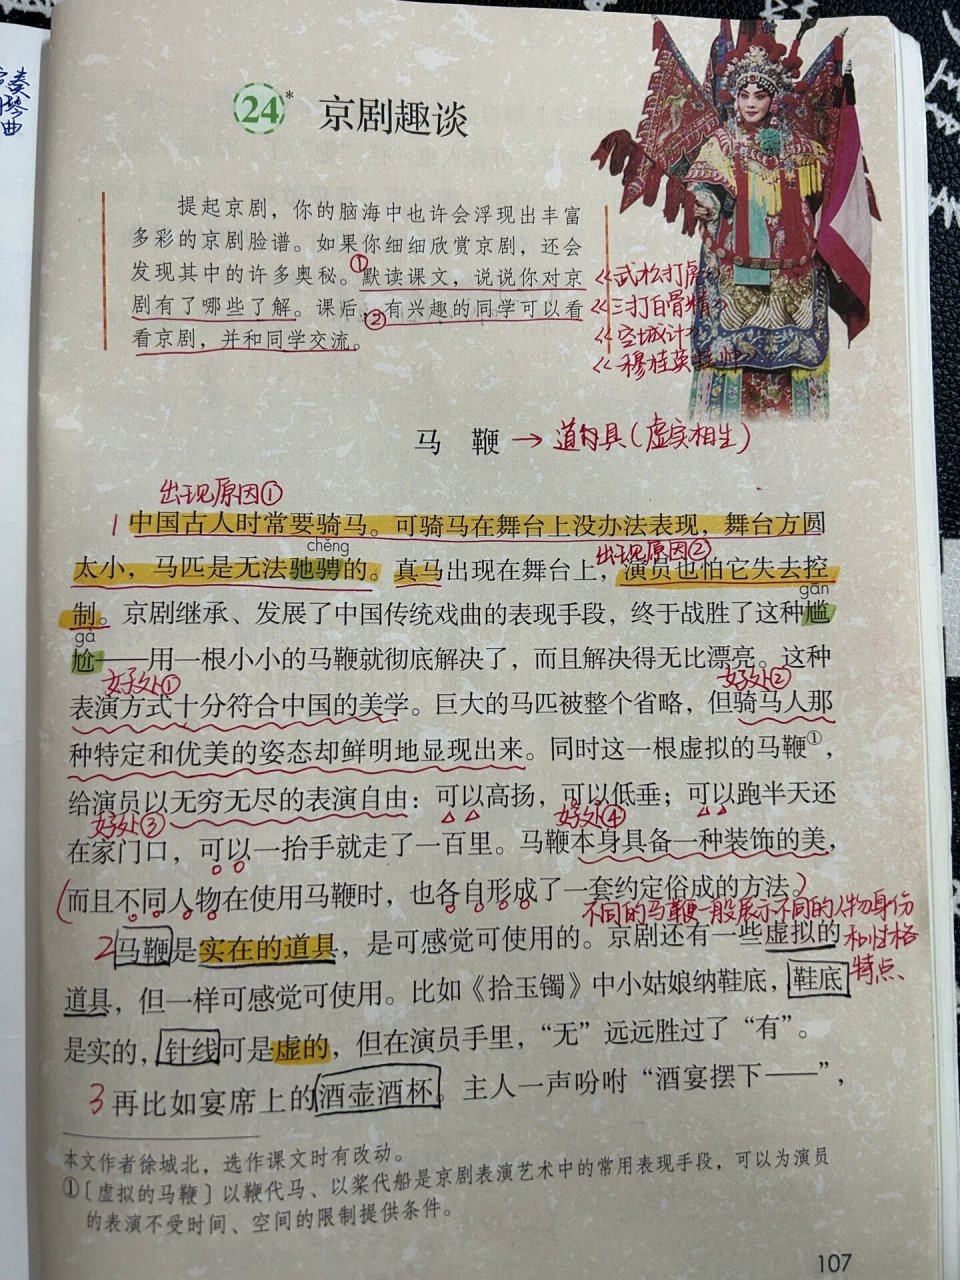 奏
琴
曲
24* 京剧趣谈
提起京剧，你的脑海中也许会浮现出丰富
多彩的京剧脸谱。如果你细细欣赏京剧，还会
发现其中的许多奥秘。①默读课文，说说你对京
剧有了哪些了解。课后，②有兴趣的同学可以看
看京剧，并和同学交流。
《武松打虎》
《三打白骨精》
《空城计》
《穆桂英挂帅》
马 鞭 → 道具（虚实相生）
出现原因①
1 中国古人时常要骑马。可骑马在舞台上没办法表现，舞台方圆
chěng
出现原因②
太小，马匹是无法驰骋的。真马出现在舞台上，演员也怕它失去控
gān
制。京剧继承、发展了中国传统戏曲的表现手段，终于战胜了这种尴
gà
尬——用一根小小的马鞭就彻底解决了，而且解决得无比漂亮。这种
好处① 好处②
表演方式十分符合中国的美学。巨大的马匹被整个省略，但骑马人那
种特定和优美的姿态却鲜明地显现出来。同时这一根虚拟的马鞭①，
给演员以无穷无尽的表演自由：可以高扬，可以低垂；可以跑半天还
好处③ 好处④
在家门口，可以一抬手就走了一百里。马鞭本身具备一种装饰的美，
（而且不同人物在使用马鞭时，也各自形成了一套约定俗成的方法。）
不同的马鞭一般展示不同的人物身份
和性格
特点、
2 马鞭是实在的道具，是可感觉可使用的。京剧还有一些虚拟的
道具，但一样可感觉可使用。比如《拾玉镯》中小姑娘纳鞋底，鞋底
是实的，针线可是虚的，但在演员手里，“无”远远胜过了“有”。
3 再比如宴席上的酒壶酒杯。主人一声吩咐“酒宴摆下——”，
本文作者徐城北，选作课文时有改动。
①〔虚拟的马鞭〕以鞭代马、以桨代船是京剧表演艺术中的常用表现手段，可以为演员
的表演不受时间、空间的限制提供条件。
107